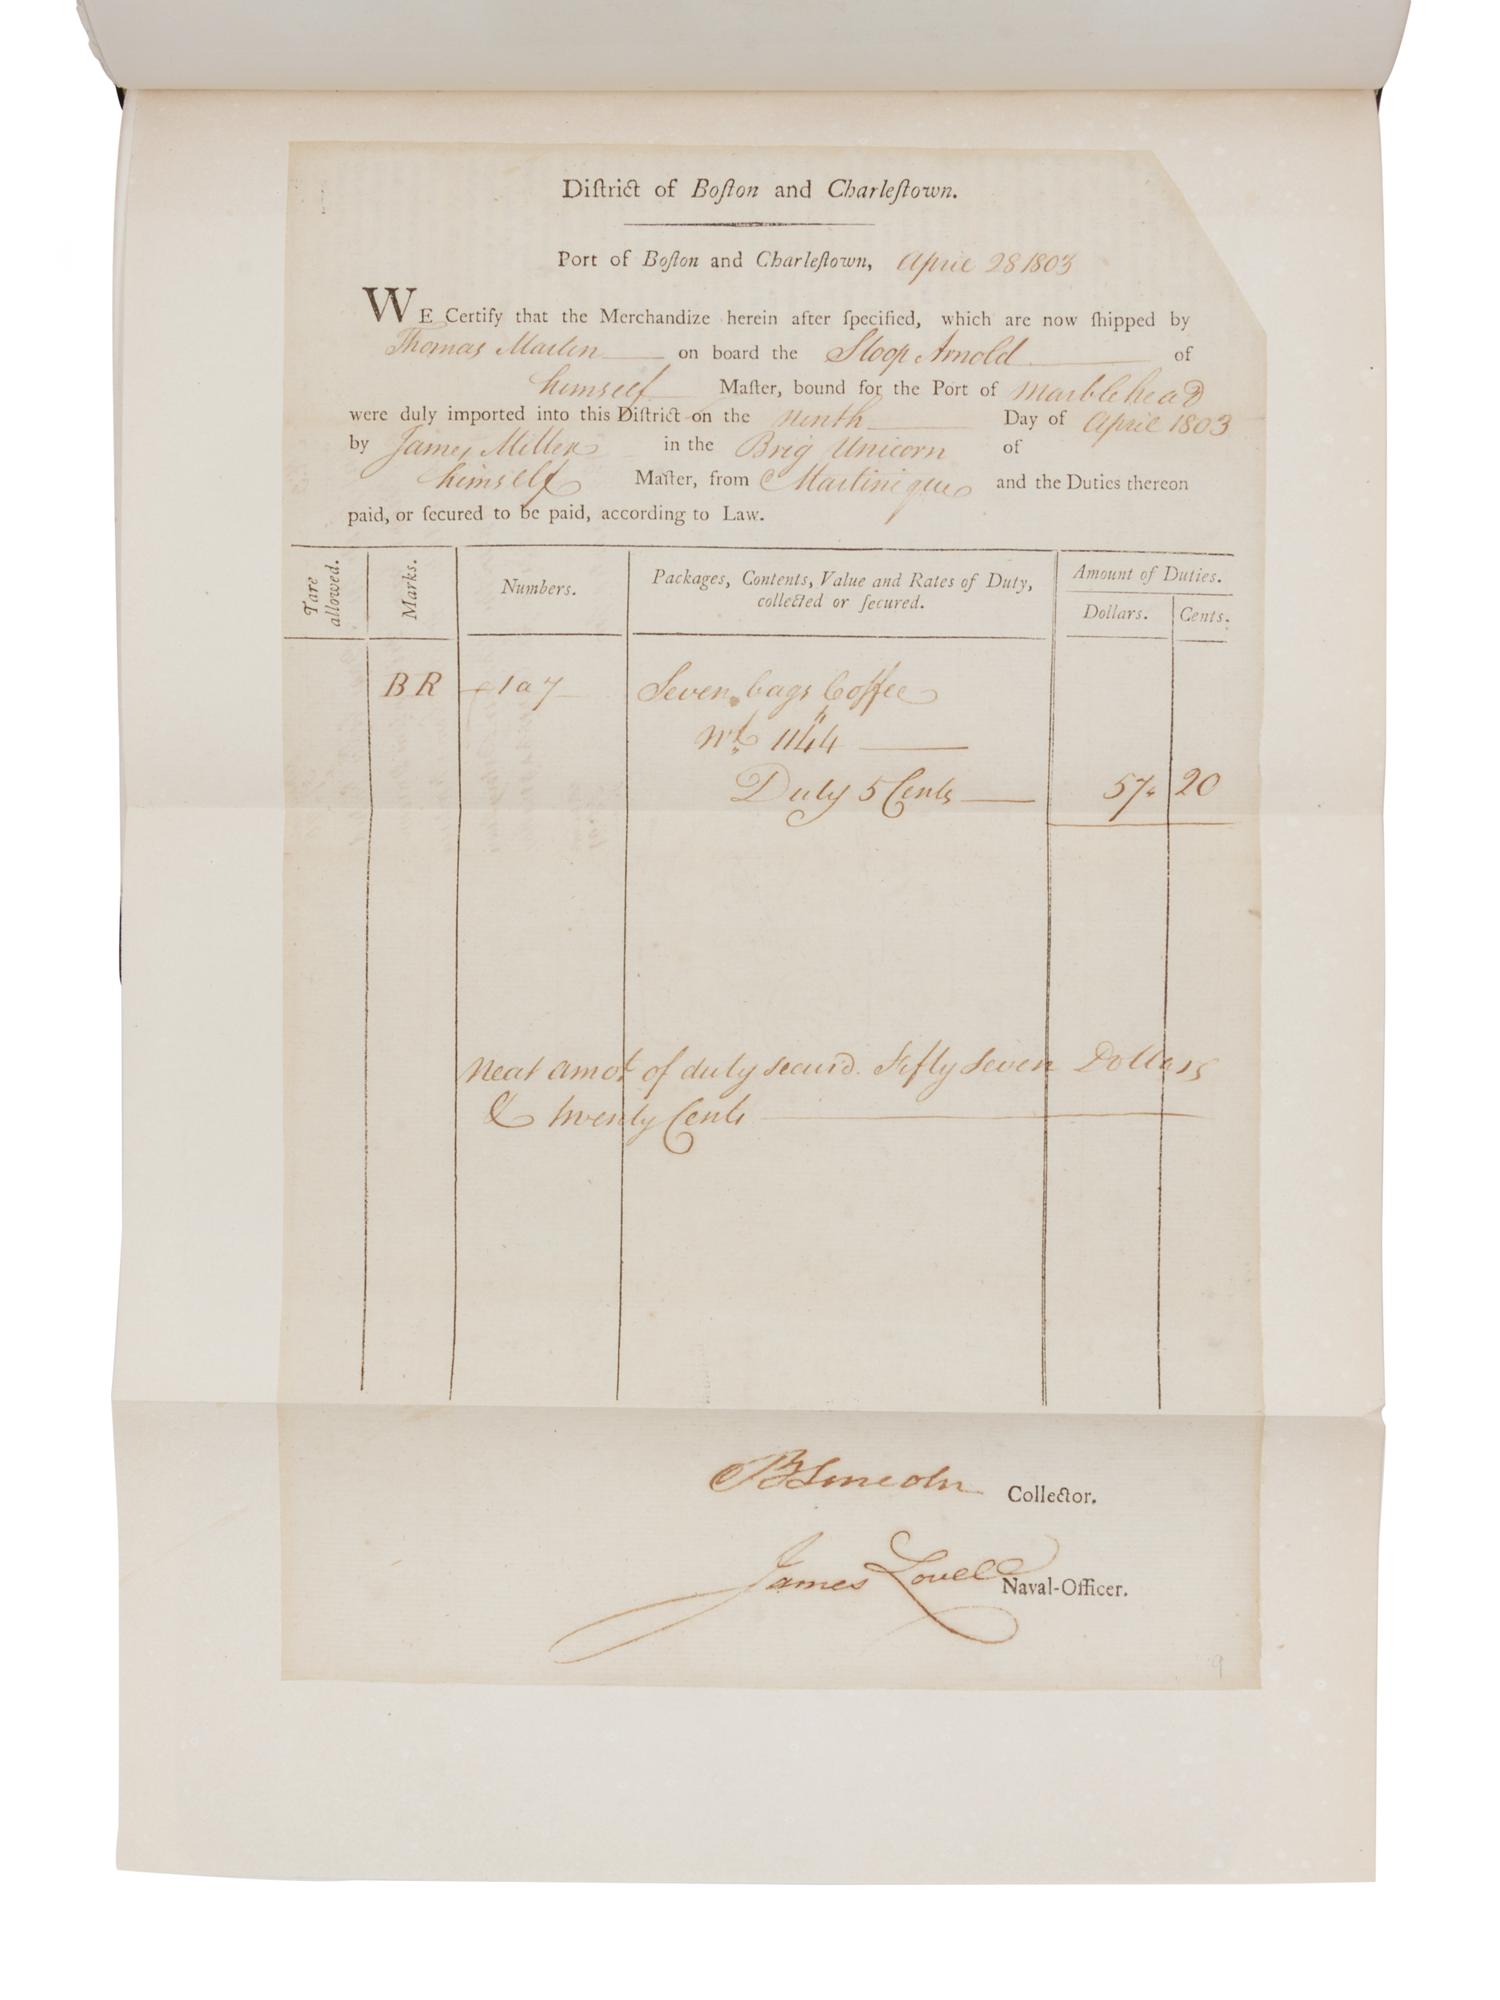 Diſtrict of Boſton and Charleſtown.
Port of Boſton and Charleſtown, April 28 1803
WE Certify that the Merchandize herein after ſpecified, which are now ſhipped by
Thomas Martin on board the Sloop Arnold of
himself Maſter, bound for the Port of Marblehead
were duly imported into this Diſtrict on the ninth Day of April 1803
by James Miller in the Brig Unicorn of
himself Maſter, from Martinique and the Duties thereon
paid, or ſecured to be paid, according to Law.
Tare allowed. Marks. Numbers. Packages, Contents, Value and Rates of Duty, collected or ſecured. Amount of Duties.
Dollars. Cents.
B R 1 a 7 Seven bags Coffee
Wt 1144
Duty 5 Cents 57. 20
Neat amot of duty secur'd. Fifty Seven Dollars
& twenty Cents
B Lincoln Collector.
James Lovell Naval-Officer.
9